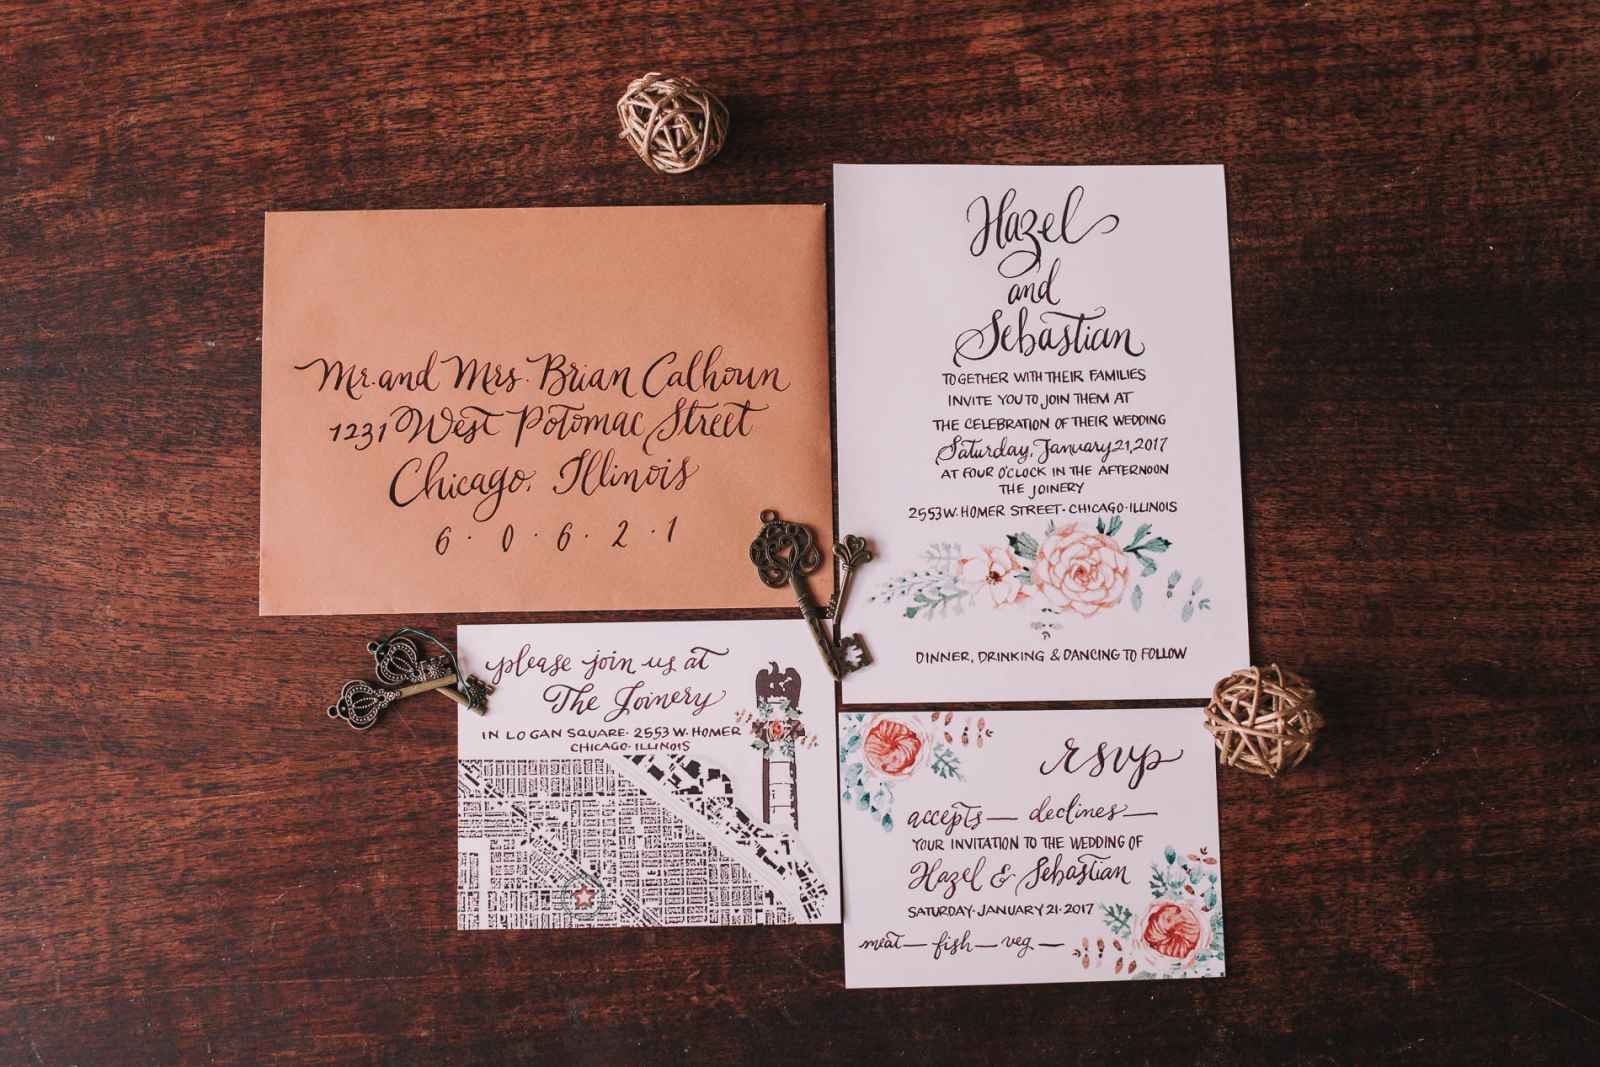 Mr. and Mrs. Brian Calhoun
1231 West Potomac Street
Chicago, Illinois
6 · 0 · 6 · 2 · 1
Hazel
and
Sebastian
TOGETHER WITH THEIR FAMILIES
INVITE YOU TO JOIN THEM AT
THE CELEBRATION OF THEIR WEDDING
Saturday, January 21, 2017
AT FOUR O'CLOCK IN THE AFTERNOON
THE JOINERY
2553 W. HOMER STREET · CHICAGO · ILLINOIS
DINNER, DRINKING & DANCING TO FOLLOW
please join us at
The Joinery
IN LOGAN SQUARE · 2553 W. HOMER
CHICAGO · ILLINOIS
rsvp
accepts — declines —
YOUR INVITATION TO THE WEDDING OF
Hazel & Sebastian
SATURDAY · JANUARY 21 · 2017
meat — fish — veg —